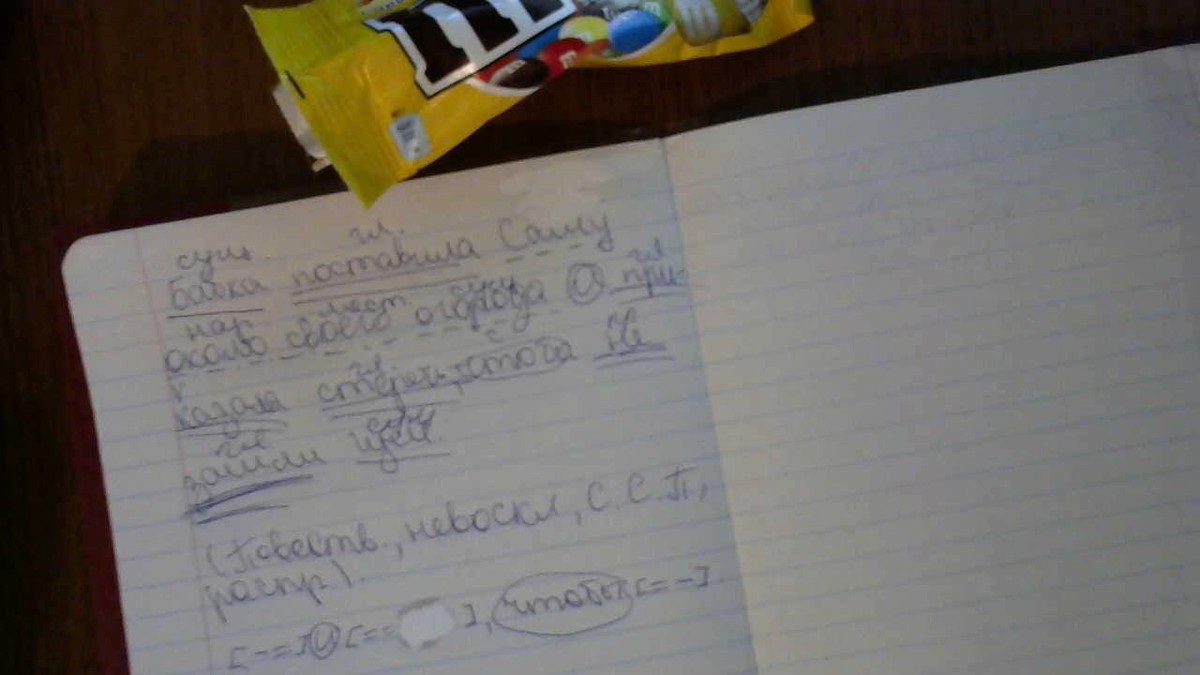 сущ. гл.
Бабка поставила Сашу
нар мест сущ гл
около своего огорода и при-
казала стеречь, чтобы не
гл сущ
зашли
(Повеств., невоскл, С.С.П,
распр).
[-=]и[== ], чтобы[=-].